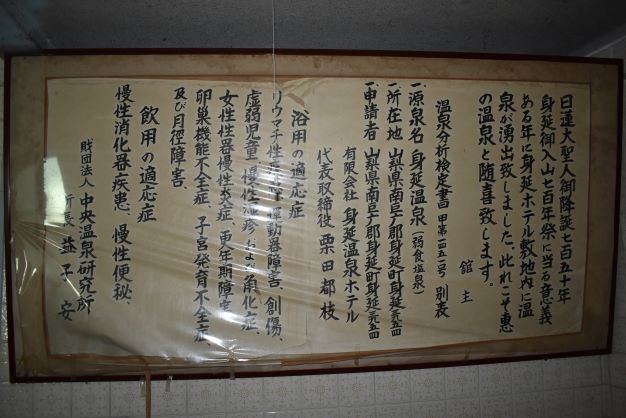 日蓮大聖人御降誕七百五十年
身延御入山七百年祭に当る意義
ある年に身延ホテル敷地内に温
泉が湧出致しました、此れこそ恵
の温泉と随喜致します。
館主
温泉分析検定書 甲第一四五二号 別表
一、源泉名 身延温泉（弱食塩泉）
一、所在地 山梨県南巨摩郡身延町身延
一、申請者 山梨県南巨摩郡身延町身延
有限会社 身延温泉ホテル
代表取締役 栗田都枝
浴用の適応症
リウマチ性疾患、運動器障害、創傷、
虚弱児童、慢性湿疹および角化症、
女性性器慢性炎症、更年期障害、
卵巣機能不全症、子宮発育不全症
及び月経障害、
飲用の適応症
慢性消化器疾患、慢性便秘、
財団法人 中央温泉研究所
所長 益子 安